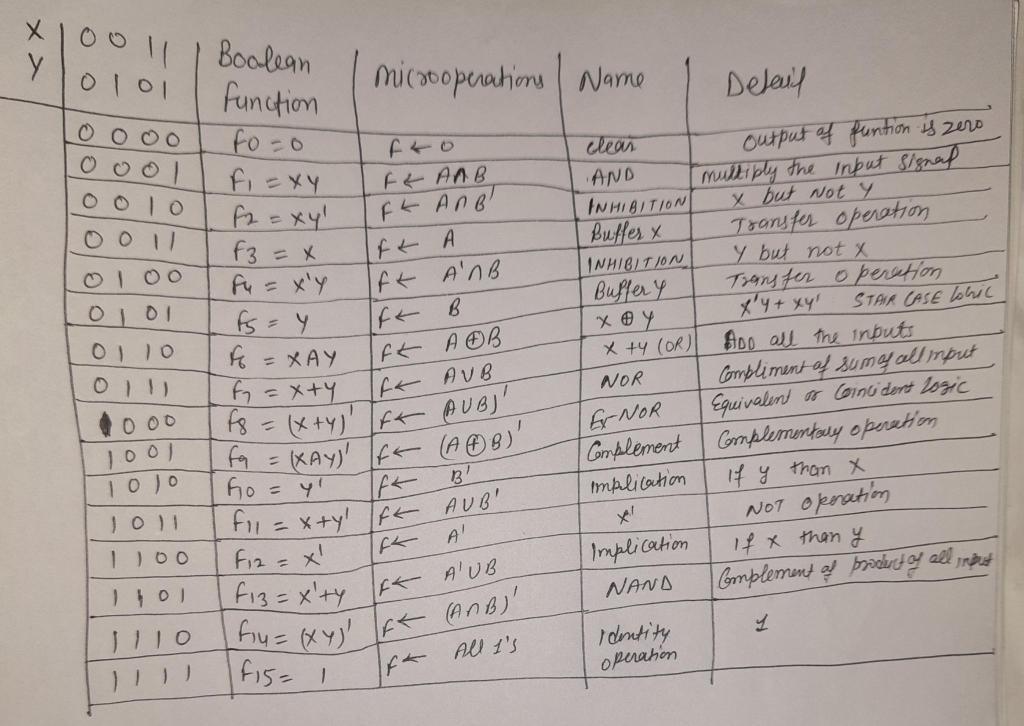 X | 0 0 1 1 | Boolean function | microoperations | Name | Detail
Y | 0 1 0 1
0 0 0 0 | F0 = 0 | F ← 0 | clear | output of funtion is zero
0 0 0 1 | F1 = XY | F ← A∩B | AND | multiply the input signal
0 0 1 0 | F2 = XY' | F ← A∩B' | INHIBITION | X but Not Y
0 0 1 1 | F3 = X | F ← A | Buffer X | Transfer operation
0 1 0 0 | F4 = X'Y | F ← A'∩B | INHIBITION | Y but not X
0 1 0 1 | F5 = Y | F ← B | Buffer Y | Transfer operation
0 1 1 0 | F6 = XAY | F ← A⊕B | X⊕Y | X'Y + XY' STAIR CASE Logic
0 1 1 1 | F7 = X+Y | F ← AUB | X+Y (OR) | ADD all the inputs
1 0 0 0 | F8 = (X+Y)' | F ← (AUB)' | NOR | Compliment of sum of all input
1 0 0 1 | F9 = (XAY)' | F ← (A⊕B)' | Ex-NOR | Equivalent or Coincident Logic
1 0 1 0 | F10 = Y' | F ← B' | Complement | Complementary operation
1 0 1 1 | F11 = X+Y' | F ← AUB' | Implication | If y than X
1 1 0 0 | F12 = X' | F ← A' | X' | NOT operation
1 1 0 1 | F13 = X'+Y | F ← A'UB | Implication | If x than y
1 1 1 0 | F14 = (XY)' | F ← (A∩B)' | NAND | Complement of product of all input
1 1 1 1 | F15 = 1 | F ← All 1's | Identity operation | 1